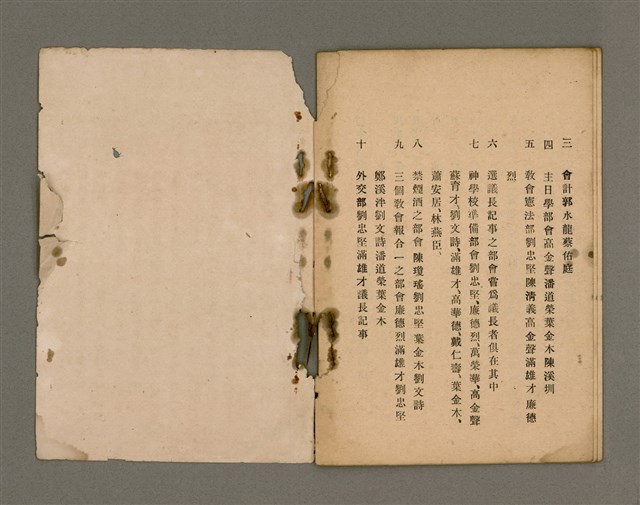 三　會計郭水龍蔡佑庭
四　主日學部會高金聲潘道榮葉金木陳溪圳
五　敎會憲法部劉忠堅陳清義高金聲滿雄才廉德
烈
六　選議長記事之部會嘗爲議長者俱在其中
七　神學校準備部會劉忠堅、廉德烈、萬榮華、高金聲
蘇育才、劉文詩、滿雄才、高華德、戴仁壽、葉金木、
蕭安居、林燕臣、
八　禁煙酒之部會陳瓊琚劉忠堅葉金木劉文詩
九　三個敎會報合一之部會廉德烈滿雄才劉忠堅
鄭溪泮劉文詩潘道榮葉金木
十　外交部劉忠堅滿雄才議長記事